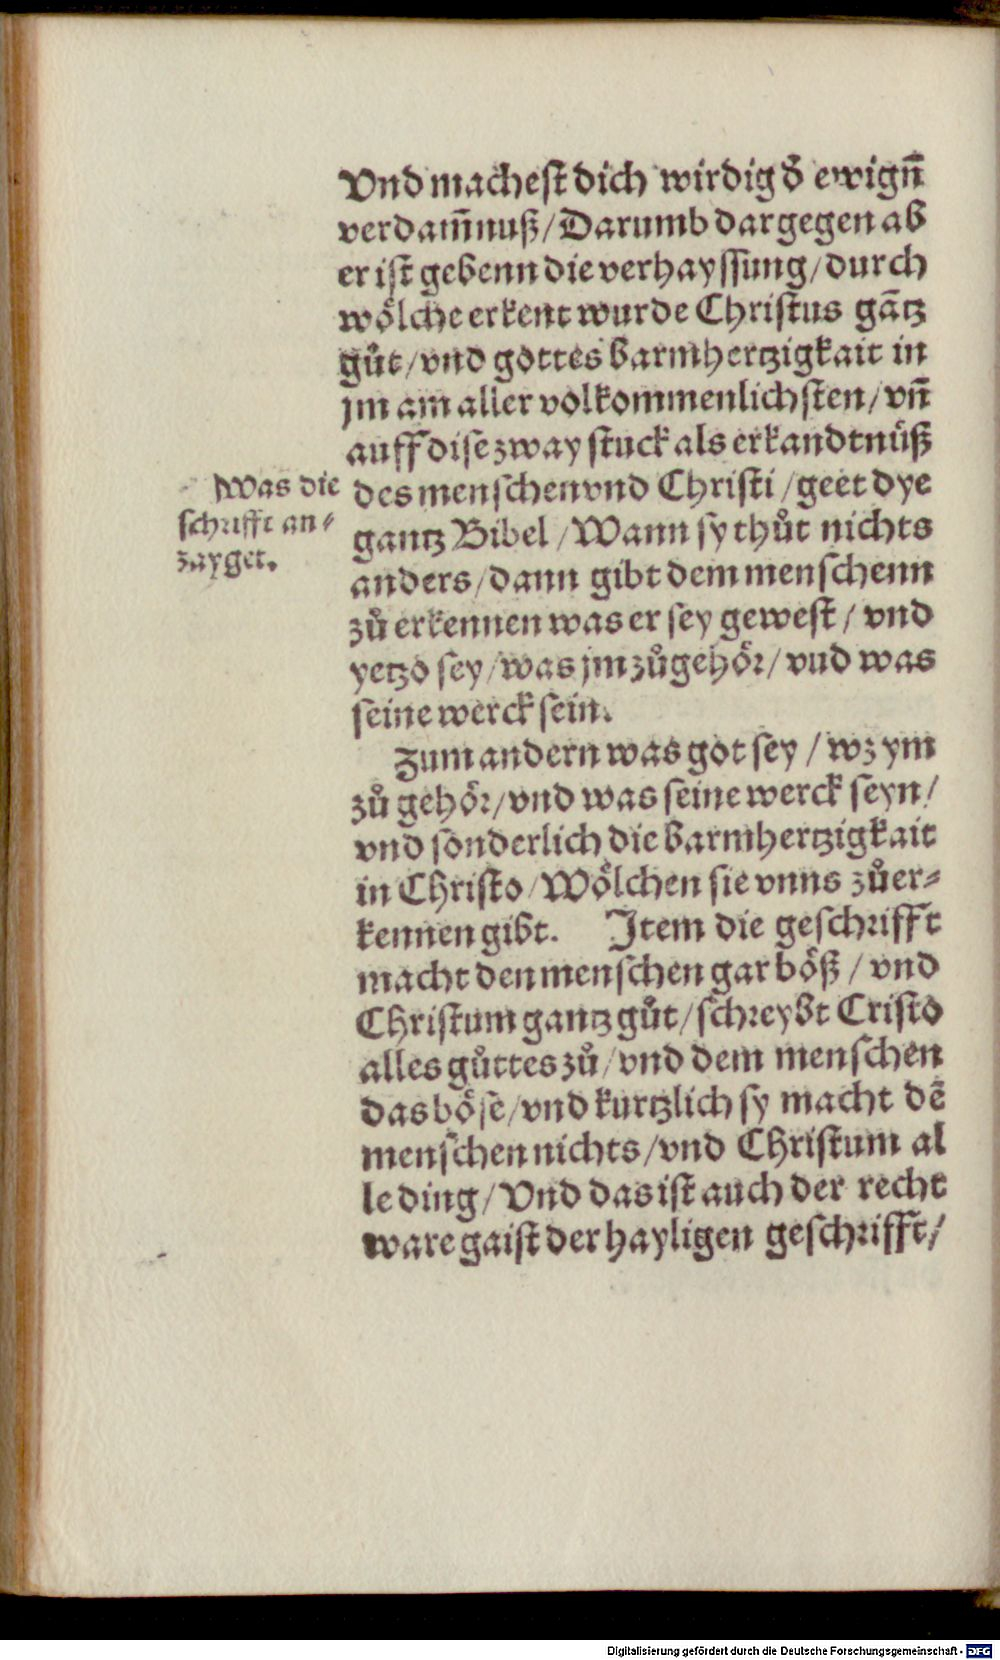 Vnd machest dich wirdig d̄ ewign̄
verdam̄nuß/Darumb dargegen ab
er ist gebenn die verhayssung/durch
wölche erkent wurde Christus gātz
gůt/vnd gottes barmhertzigkait in
jm am aller volkommenlichsten/vn̄
auff dise zway stuck als erkandtnüß
des menschen vnd Christi/geet dye
gantz Bibel/Wann sy thůt nichts
anders/dann gibt dem menschenn
zů erkennen was er sey gewest/vnd
yetzo sey/was jm zůgehör/vnd was
seine werck sein.
Was die
schrifft an⸗
zayget.
Zum andern was got sey/wz ym
zů gehör/vnd was seine werck seyn/
vnd sonderlich die barmhertzigkait
in Christo/Wölchen sie vnns zůer⸗
kennen gibt. Item die geschrifft
macht den menschen gar böß/vnd
Christum gantz gůt/schreybt Cristo
alles gůttes zů/vnd dem menschen
das böse/vnd kurtzlich sy macht dē
menschen nichts/vnd Christum al
le ding/Vnd das ist auch der recht
ware gaist der hayligen geschrifft/
Digitalisierung gefördert durch die Deutsche Forschungsgemeinschaft - DFG